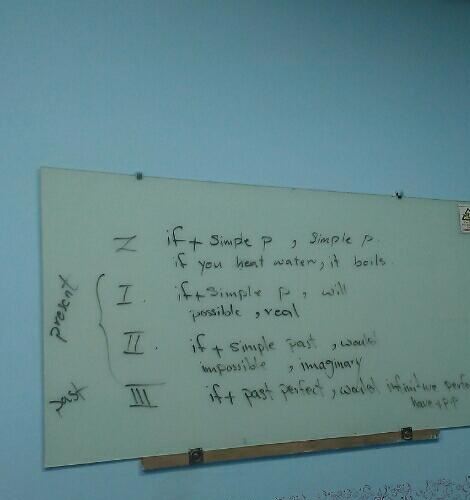 Z if + simple p , simple p.
if you heat water, it boils.
present
I. if + simple p , will
possible , real
II. if + simple past , would
impossible , imaginary
past
III if + past perfect , would infinitive perfe
have + p.p